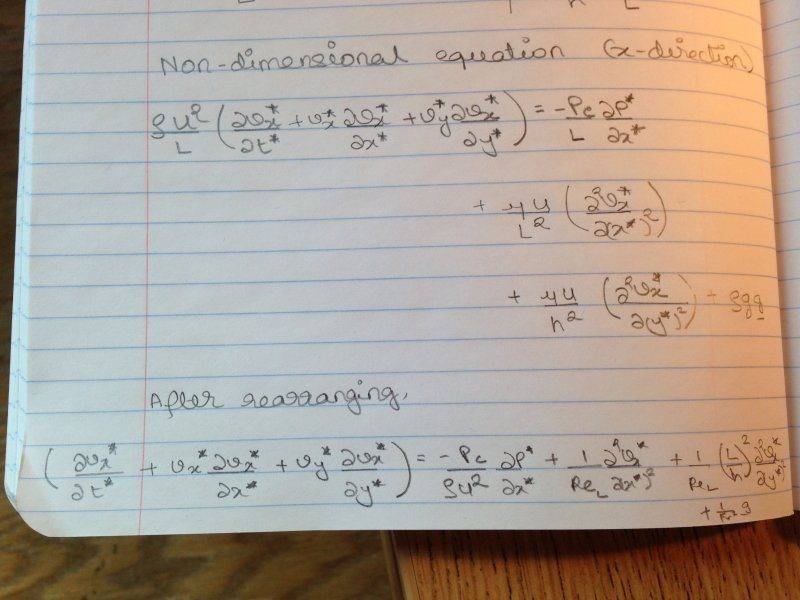 Non-dimensional equation (x-direction)
ρU²/L (∂vx*/∂t* + vx* ∂vx*/∂x* + vy* ∂vx*/∂y*) = -Pc/L ∂P*/∂x*
+ μU/L² (∂²vx*/∂(x*)²)
+ μU/h² (∂²vx*/∂(y*)²) + ρg
After rearranging,
(∂vx*/∂t* + vx* ∂vx*/∂x* + vy* ∂vx*/∂y*) = -Pc/ρU² ∂P*/∂x* + 1/ReL ∂²vx*/∂(x*)² + 1/ReL (L/h)² ∂²vx*/∂(y*)²